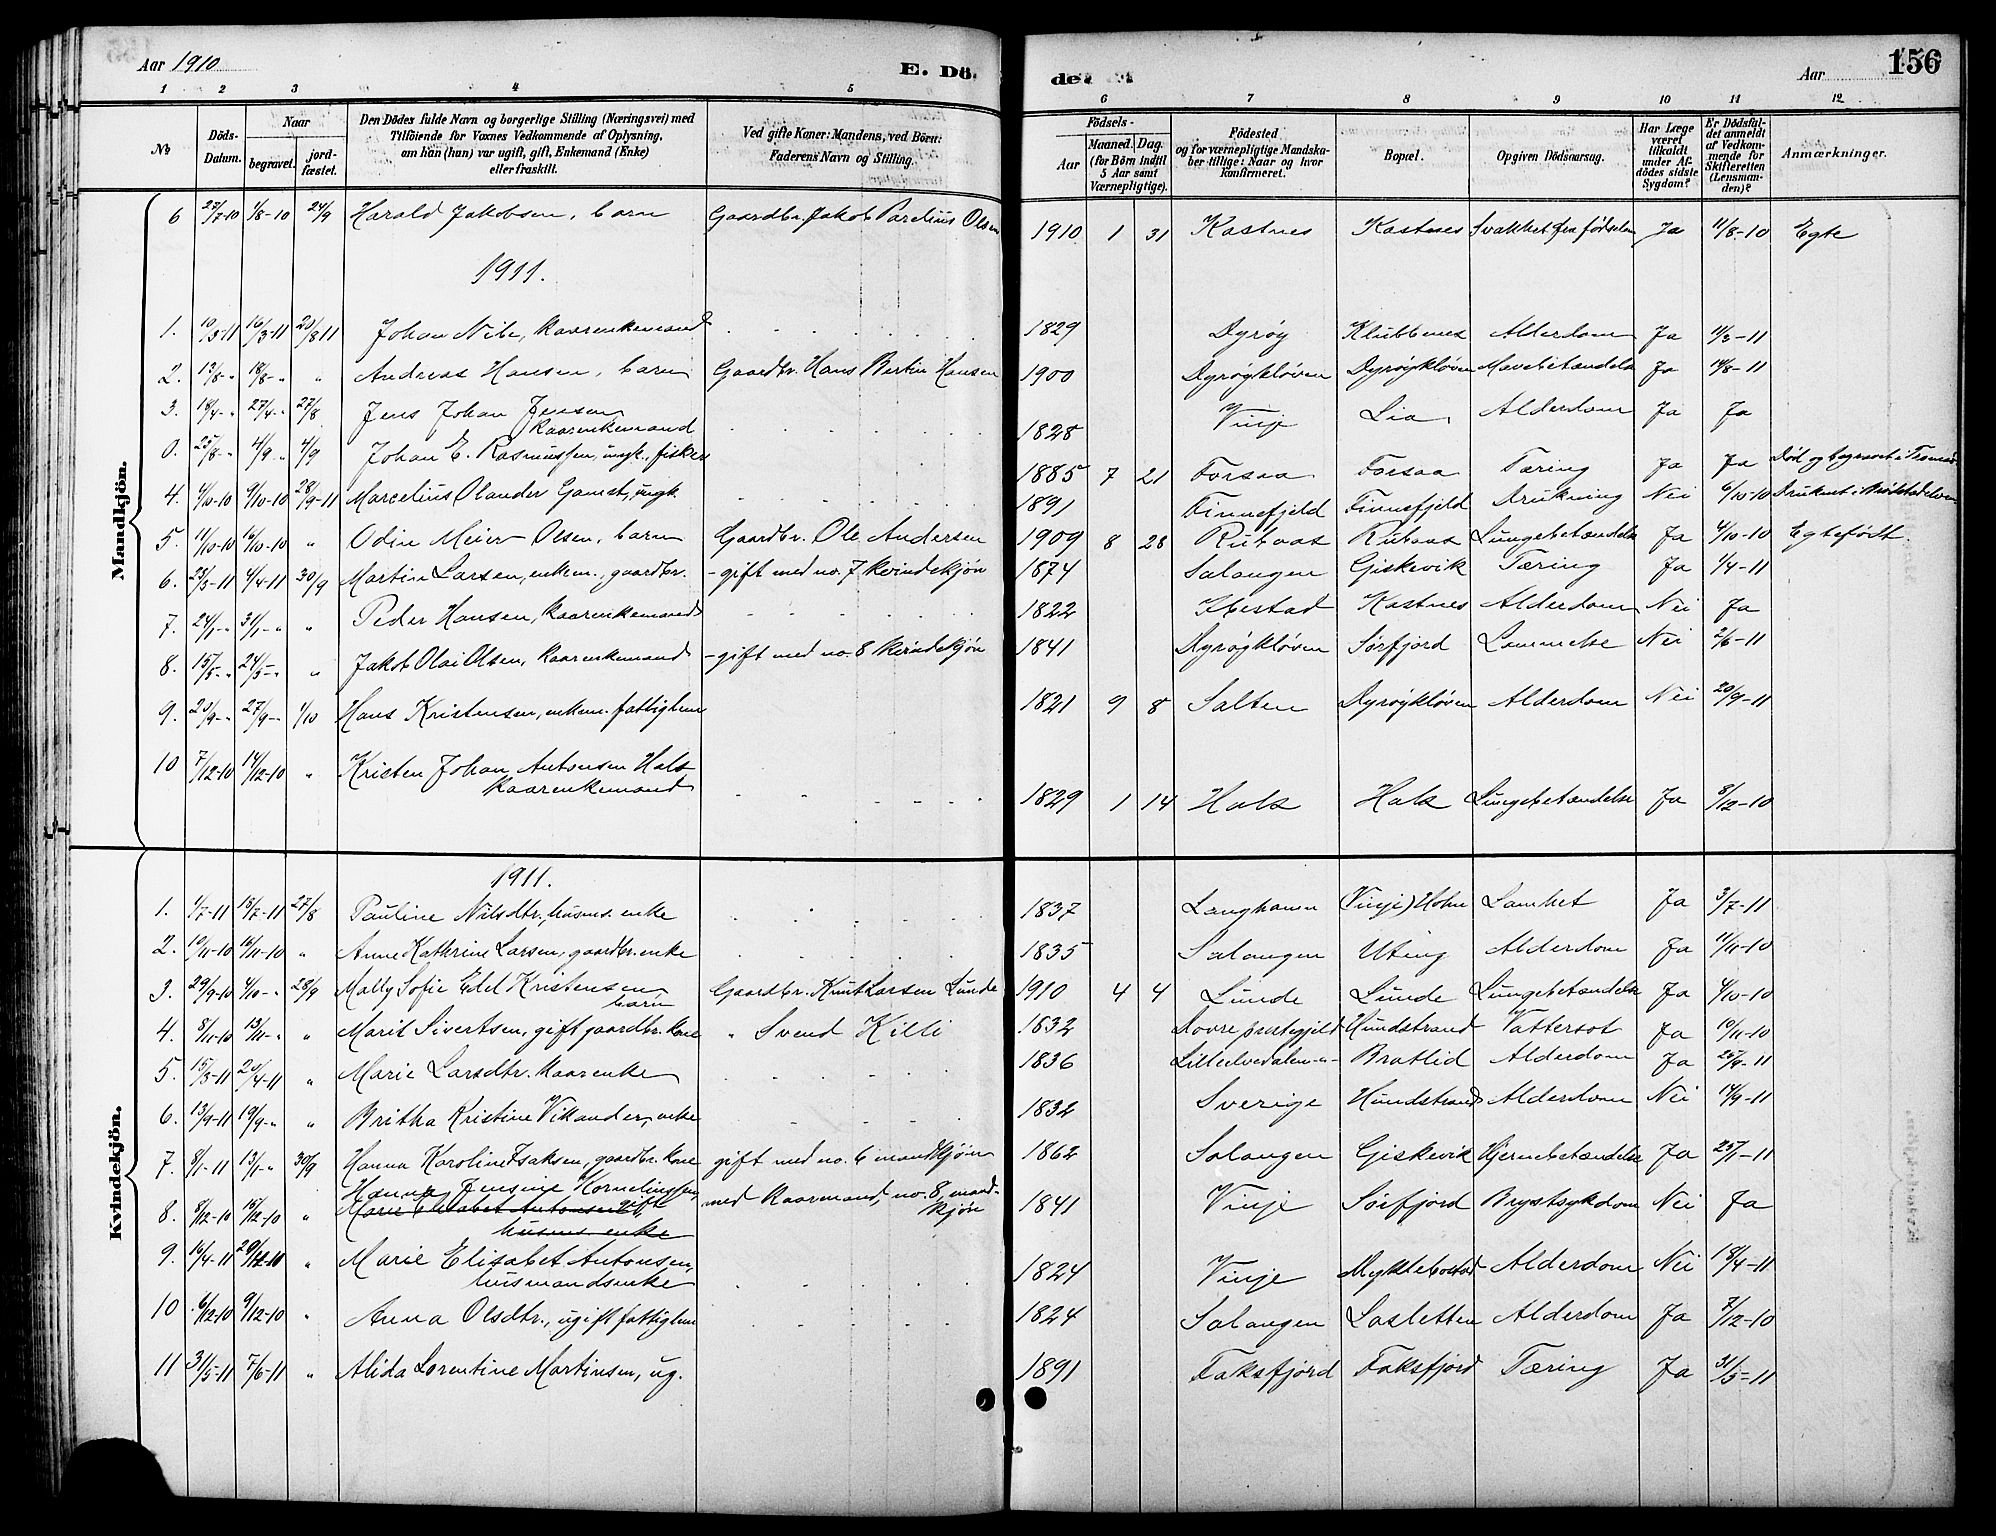 Aar 1910
E. Dö-
de
Aar
156
1 2 3 4 5 6 7 8 9 10 11 12
No
Döds-Datum.
Naar
begravet.
jord-fæstet.
Den Dödes fulde Navn og borgerlige Stilling (Næringsvei) med
Tilföiende for Voxnes Vedkommende af Oplysning,
om han (hun) var ugift, gift, Enkemand (Enke)
eller fraskilt.
Ved gifte Koner: Mandens, ved Börn:
Faderens Navn og Stilling.
Födsels-
Aar
Maaned. Dag.
(for Börn indtil
5 Aar samt
Værnepligtige).
Födested
og for værnepligtige Mandska-
ber tillige: Naar og hvor
konfirmeret.
Bopæl.
Opgiven Dödsaarsag.
Har Læge
været
tilkaldt
under Af-
dödes sidste
Sygdom?
Er Dödsfal-
det anmeldt
af Vedkom-
mende for
Skifteretten
(Lensman-
den)?
Anmærkninger.
Mandkjön.
6 27/7-10 1/8-10 24/9 Harald Jakobsen, barn Gaardbr. Jakob Parelius Olsen 1910 1 31 Kastnes Kastnes Svakhet fra fødselen Ja 11/8-10 Egte
1911.
1. 10/3-11 16/3-11 20/8 11 Johan Nibe, kaarenkemand 1829 Dyrøy Klubbenes Alderdom Ja 11/3-11
2. 13/8-" 18/8-" " Andreas Hansen, barn Gaardbr. Hans Bertin Hansen 1900 Dyrøykløven Dyrøykløven Mavebetændelse Ja 14/8-11
3. 18/4-" 27/4-" 27/8 Jens Johan Jensen
kaarenkemand 1828 Vinje Lia Alderdom Ja Ja
0. 25/8-" 4/9-" 4/9 Johan E. Rasmussen, ungk., fisker 1885 7 21 Forsaa Forsaa Tæring Ja Ja Død og begravet i Tromsø
4. 4/10-10 9/10-10 28/9-11 Marcelius Olander Gamst, ungk. 1891 Finnefjeld Finnefjeld Drukning Nei 6/10-10
5. 11/10-10 16/10-10 " Odin Meier Olsen, barn Gaardbr. Ole Andersen 1909 8 28 Rubaas Rubaas Lungebetændelse Ja 4/10-10 Egtefødt.
6. 25/3-11 4/4-11 30/9 Martin Larsen, enkem., gaardbr. - gift med no. 7 kvindekjøn 1874 Salangen Giskevik Tæring Ja 1/4-11
7. 24/1-" 31/1-" " Peder Hansen, kaarenkemand 1822 Ibestad Kastnes Alderdom Nei Ja
8. 15/5-" 24/5-" " Jakob Olai Olsen, kaarenkemand - gift med no. 8 kvindekjøn 1841 Dyrøykløven Sørfjord Lammelse Nei 2/6-11
9. 20/9-" 27/9-" 1/10 Hans Kristensen, enkem. fattiglem 1821 9 8 Salten Dyrøykløven Alderdom Nei 20/9-11
10 7/12-10 14/12-10 " Kristen Johan Antonsen Hals
kaarenkemand 1829 1 14 Hals Hals Lungebetændelse Ja 8/12-10
Kvindekjön.
1911.
1. 1/7-11 18/7-11 27/8 Pauline Nilsdtr., husms. enke 1837 Langhamn (Vinje) Holm Lamhet Ja 3/7-11
2. 10/11-10 16/11-10 " Anne Kathrine Larsen, gaardbr. enke 1835 Salangen Uting Alderdom Ja 11/11-10
3. 29/9-10 4/10-" 28/9 Mally Sofie Edel Kristensen
barn Gaardbr. Knut Larsen Lunde 1910 4 4 Lunde Lunde Lungebetændelse Ja 4/10-10
4. 8/11-10 13/11-" " Marit Sivertsen, gift gaardbr. kone " Svend Killi 1832 Dovre prestegjeld Hundstrand Vattersot Ja 10/11-10
5. 15/3-11 20/4-11 " Marie Larsdtr. kaarenke 1836 Lilleelvedalen Bratlid Alderdom Ja 25/9-11
6. 13/9-11 19/9-" " Britha Kristine Vikander, enke 1832 Sverige Hundstrand Alderdom Nei 14/9-11
7. 8/1-11 13/1-" 30/9 Hanna Karoline Isaksen, gaardbr. kone gift med no. 6 mandkjøn 1862 Salangen Giskevik Hjernebetændelse Ja 25/1-11
Hanna Jensine Korneliussen,
8. 8/12-10 15/12-10 " Marie Elisabet Antonsen gift
husms. enke med kaarmand, no. 8, mand-
kjøn 1841 Vinje Sørfjord Brystsykdom Nei Ja
9. 16/4-11 29/12-10 " Marie Elisabet Antonsen,
husmandsenke 1824 Vinje Myklebostad Alderdom Nei 18/4-11
10 6/12-10 9/12-10 " Anna Olsdtr., ugift fattiglem 1824 Salangen Lasletten Alderdom Ja 7/12-10
11 31/5-11 7/6-11 " Alida Lorentine Martinsen, ug. 1891 Faksfjord Faksfjord Tæring Ja 31/5-11